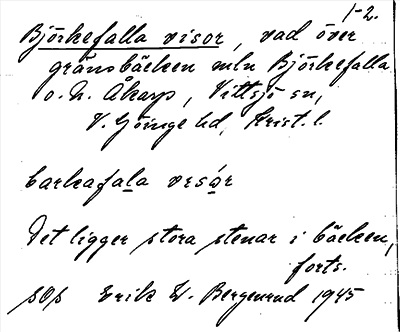 1-2.
Björkefalla visor, vad över
gränsbäcken mln Björkefalla
o. N. Åkarp, Vittsjö sn,
V. Göinge hd, Krist. l.
barkafala vesår
Det ligger stora stenar i bäcken,
forts.
sOs Erik W. Bergenrud 1945